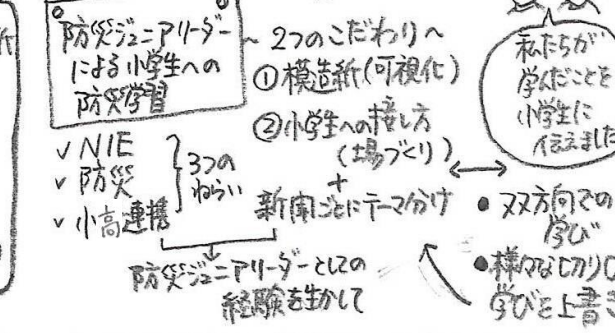 防災ジュニアリーダー
による小学生への
防災学習
~2つのこだわり~
①模造紙(可視化)
②小学生への接し方
(場づくり)
+
新聞ごとにテーマ分け
✓NIE
✓防災
✓小高連携
3つの
ねらい
防災ジュニアリーダーとしての
経験を生かして
私たちが
学んだことを
小学生に
伝えました
●双方向での
学び
●様々な切り口
学びと上書き